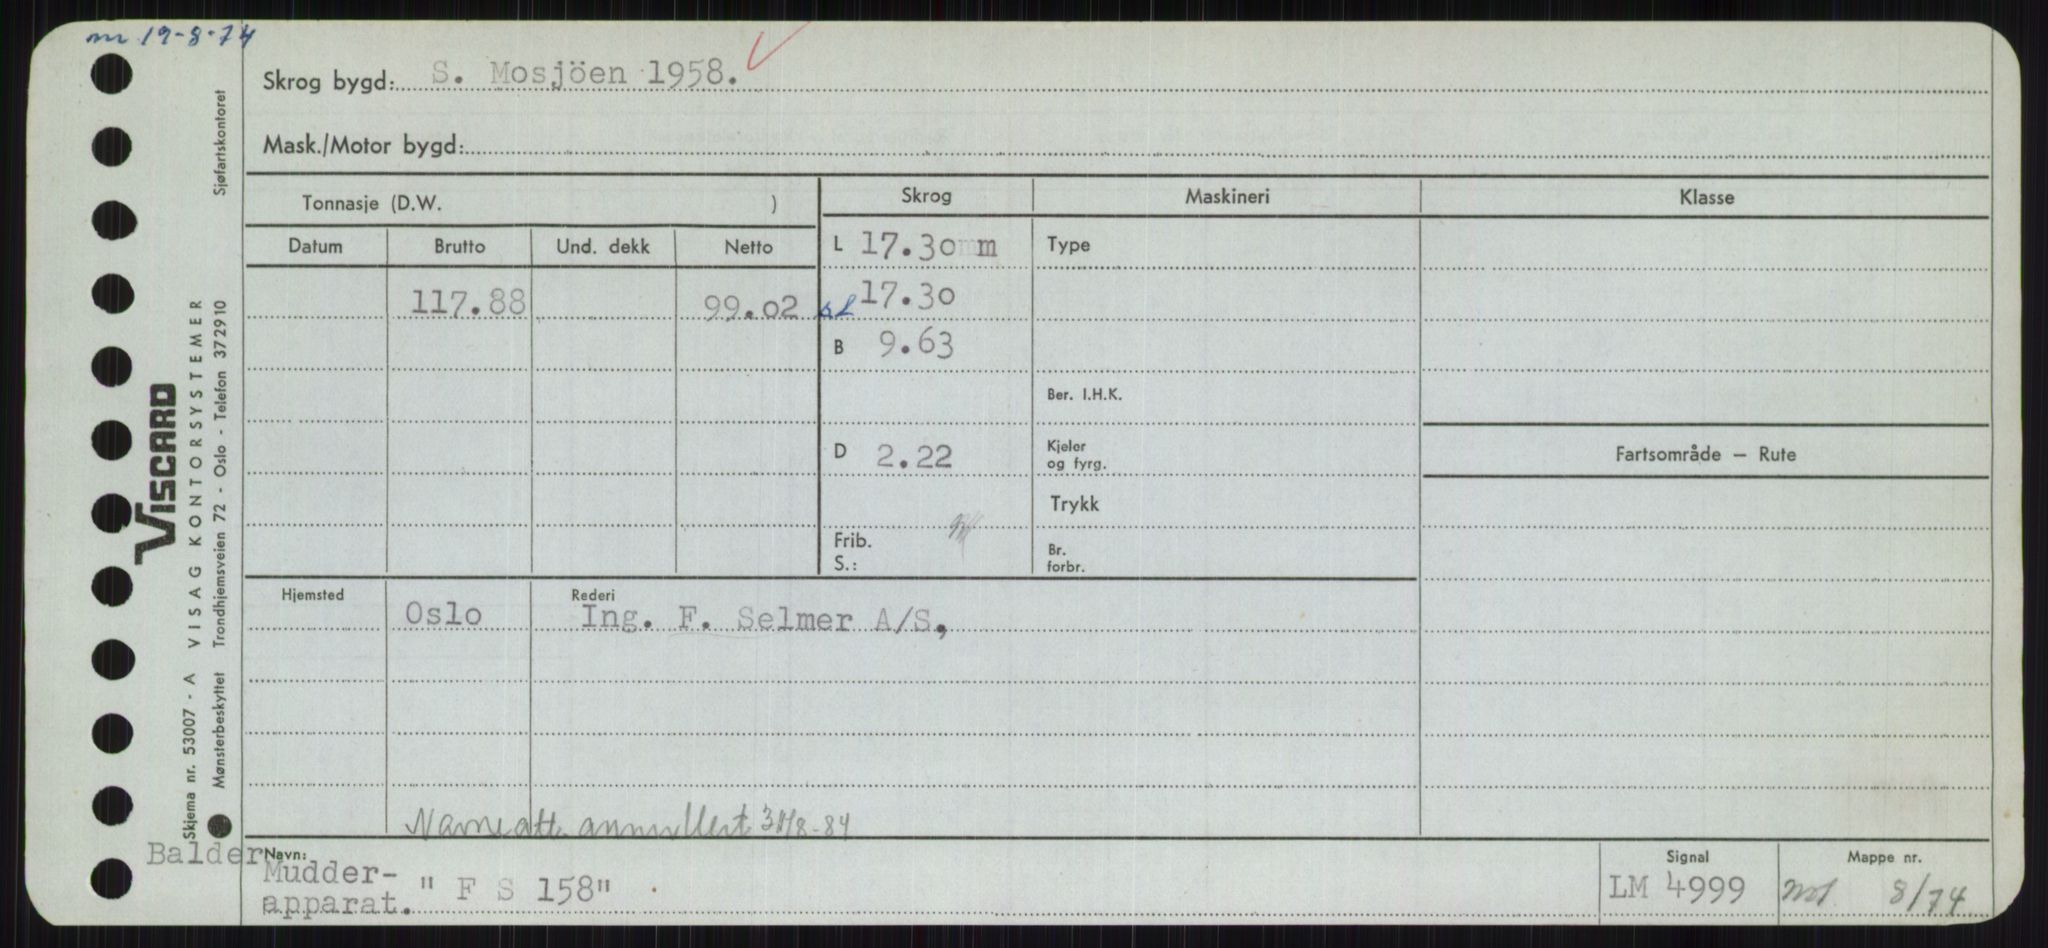 m 19-8-74
Skrog bygd: S. Mosjöen 1958.
Mask./Motor bygd:
Tonnasje (D.W. )
Skrog
Maskineri
Klasse
Datum
Brutto
Und. dekk
Netto
L 17.30 m
Type
117.88
99.02
17.30
B 9.63
Ber. I.H.K.
D 2.22
Kjeler
og fyrg.
Fartsområde – Rute
Trykk
Frib.
S.:
Br.
forbr.
Hjemsted
Rederi
Oslo
Ing. F. Selmer A/S,
Navneatt. annullert 31/8-84
Balder
Navn:
Mudder-
apparat.
" F S 158"
Signal
LM 4999
Mappe nr.
8/74
VISCARD
Skjema nr. 53007 - A VISAG KONTORSYSTEMER
Mønsterbeskyttet Trondhjemsveien 72 - Oslo - Telefon 372910 Sjøfartskontoret